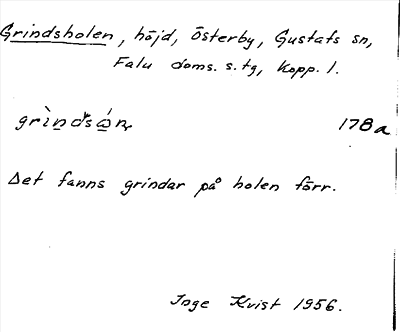 Grindsholen, höjd, Österby, Gustafs sn,
Falu doms. s. tg, Kopp. l.
178a
Det fanns grindar på holen förr.
Inge Kvist 1956.